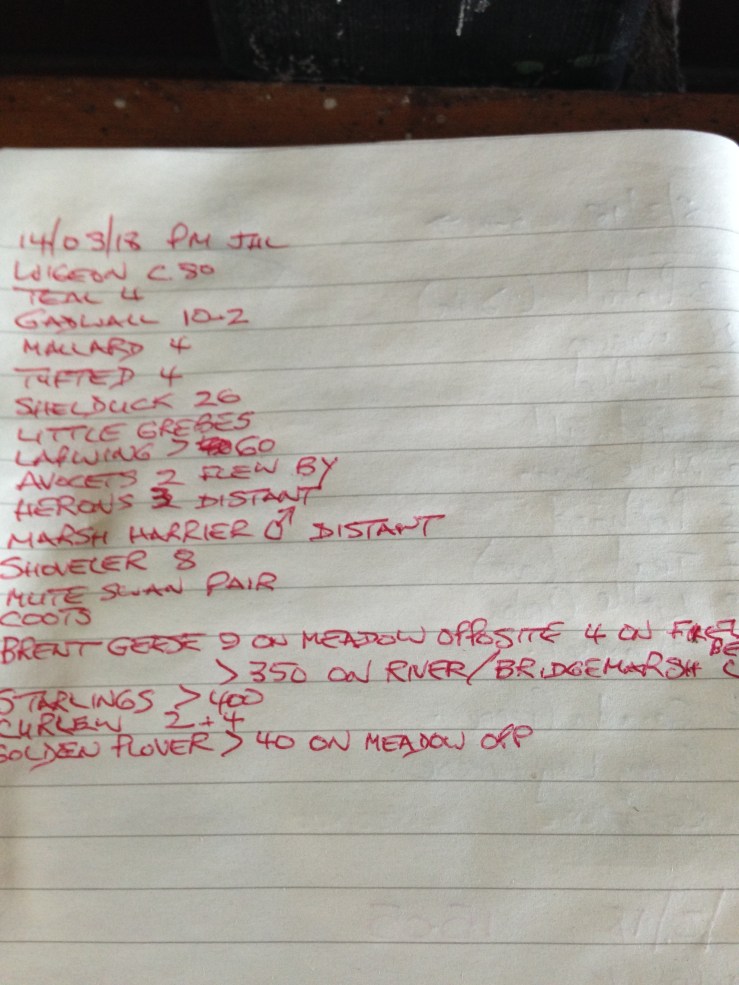 14/03/18 PM JAL
WIGEON C. 80
TEAL 4
GADWALL 10.2
MALLARD 4
TUFTED 4
SHELDUCK 26
LITTLE GREBES
LAPWING > 60
AVOCETS 2 FLEW BY
HERONS DISTANT
MARSH HARRIER ♂ DISTANT
SHOVELER 8
MUTE SWAN PAIR
COOTS
BRENT GEESE 9 ON MEADOW OPPOSITE 4 ON
> 350 ON RIVER/BRIDGEMARSH
STARLINGS > 400
CURLEW 2 + 4
GOLDEN PLOVER > 40 ON MEADOW OPP